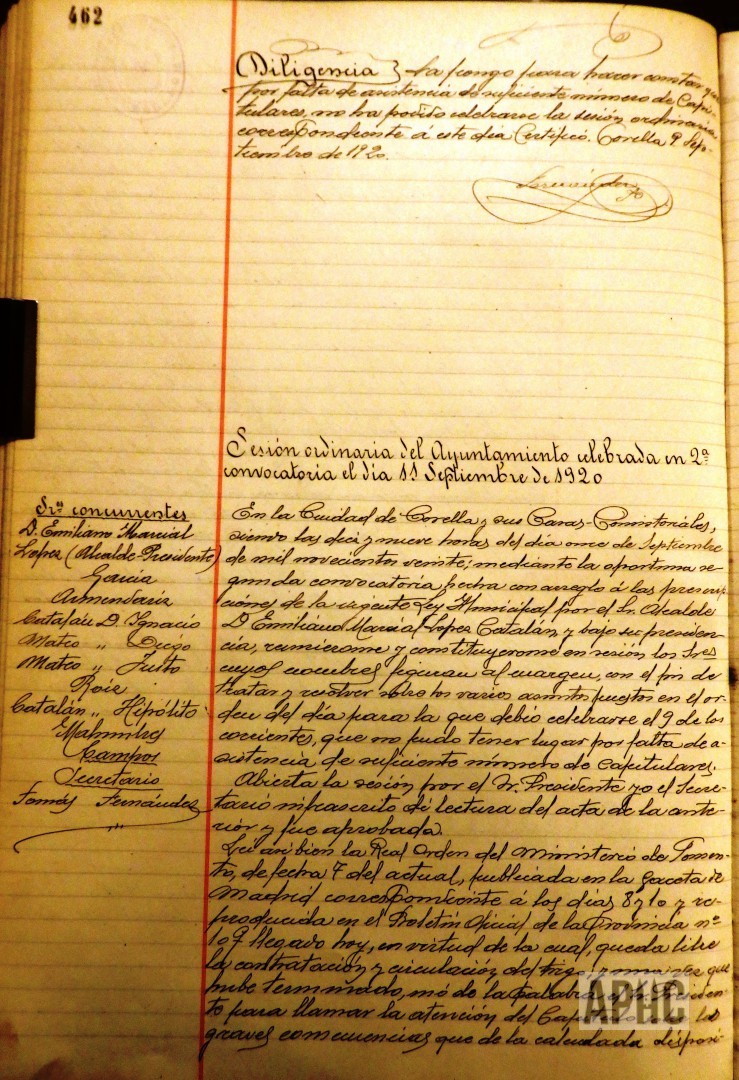 462
Diligencia } La pongo para hacer constar que
por falta de asistencia de suficiente número de Capi-
tulares, no ha podido celebrarse la sesión ordinaria
correspondiente á este día Certifico. Corella 9 Sep-
tiembre de 1920.
Fernández
Sesión ordinaria del Ayuntamiento celebrada en 2ª
convocatoria el día 11 Septiembre de 1920
Srs concurrentes
D. Emiliano Marcial
Lopez (Alcalde-Presidente)
Garcia
Armendariz
Catalán D. Ignacio
Mateo " Diego
Mateo " Justo
Catalán " Hipólito
Campos
Secretario
Tomás Fernández
En la Ciudad de Corella y sus Casas-Consistoriales,
siendo las diez y nueve horas del día once de Septiembre
de mil novecientos veinte; mediante la oportuna se-
gunda convocatoria hecha con arreglo á las prescrip-
ciones de la vigente Ley Municipal por el Sr. Alcalde
D. Emiliano Marcial Lopez Catalán, y bajo su presiden-
cia, reunieronse y constituyeronse en sesión los Sres
cuyos nombres figuran al margen, con el fin de
tratar y resolver sobre los varios asuntos puestos en el or-
den del día para la que debió celebrarse el 9 de los
corrientes, que no pudo tener lugar por falta de a-
sistencia de suficiente número de Capitulares.
Abierta la sesión por el Sr. Presidente yo el Secre-
tario infrascrito dí lectura del acta de la ante-
rior y fue aprobada.
Leí asi bien la Real Orden del Ministerio de Fomen-
to, de fecha 7 del actual, publicada en la Gaceta de
Madrid correspondiente á los dias 8 y 10 y re-
producida en el Boletín Oficial de la Provincia nº
109 llegado hoy, en virtud de la cual, queda libre
la contratación y circulación del trigo y una vez que
hube terminado, usó de la palabra el Sr. Presiden-
te para llamar la atención del Capitulo las
graves consecuencias que de la calculada disposi-
APHC